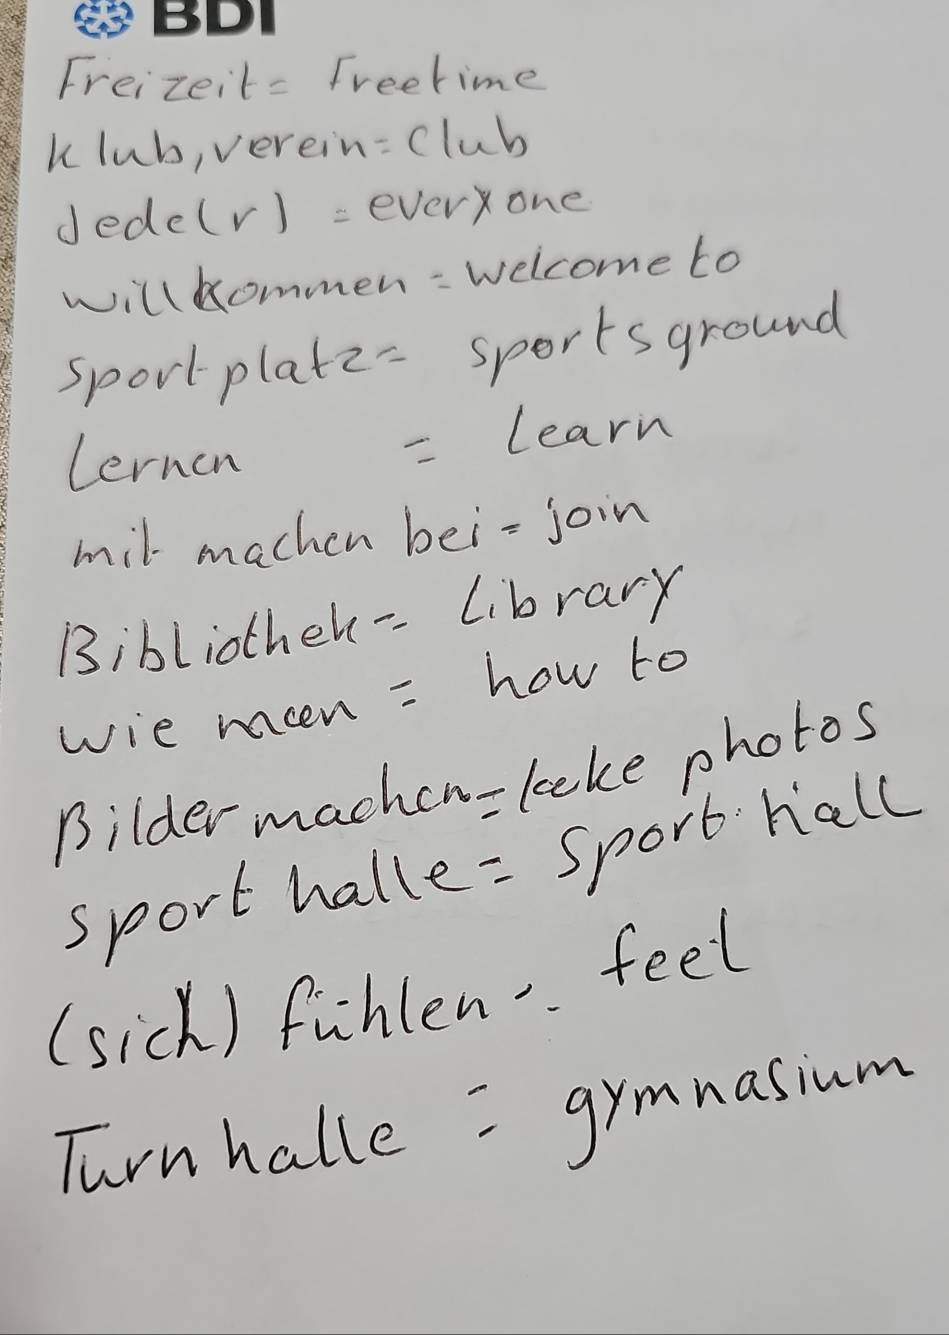 BDI
Freizeit = Freetime
klub, verein = Club
Jede(r) = everyone
willkommen = welcome to
sportplatz = sportsground
Lernen = Learn
mit machen bei = join
Bibliothek = Library
wie man = how to
Bilder machen = take photos
sport halle = Sport hall
(sich) fühlen = feel
Turnhalle = gymnasium